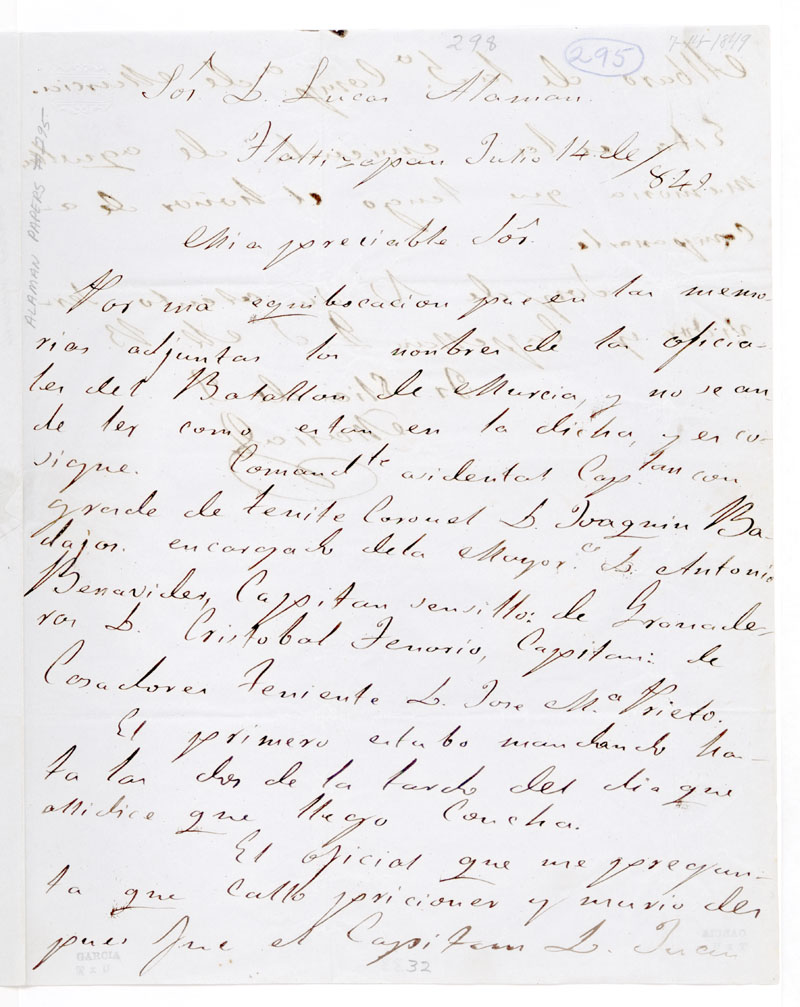 298
295
7-VII-1849
ALAMAN PAPERS 295
Sor. D. Lucas Alaman.
Tlaltizapan Julio 14 de /
849.
Mi apreciable Sor.
Por una equibocacion puse en las memo-
rias adjuntas los nombres de los oficia-
les del Batallon de Murcia, y no se an
de ler como estan en la dicha, y es co-
sigue. Comandte acidental Captan con
grado de tenite Coronel D. Joaquin Ba-
dajos. encargado dela Mayor.a D. Antonio
Benavides, Capitan sensillo: de Granade-
ros D. Cristobal Tenorio, Capitan: de
Casadores Teniente D. Jose Ma Prieto.
El primero estubo mandando ha-
ta las dos de la tarde del dia que
alli dice que llego Concha.
El oficial que me pregun-
ta que callo pricioner y murio des
pues fue el Capitan D. Juan
GARCIA
32